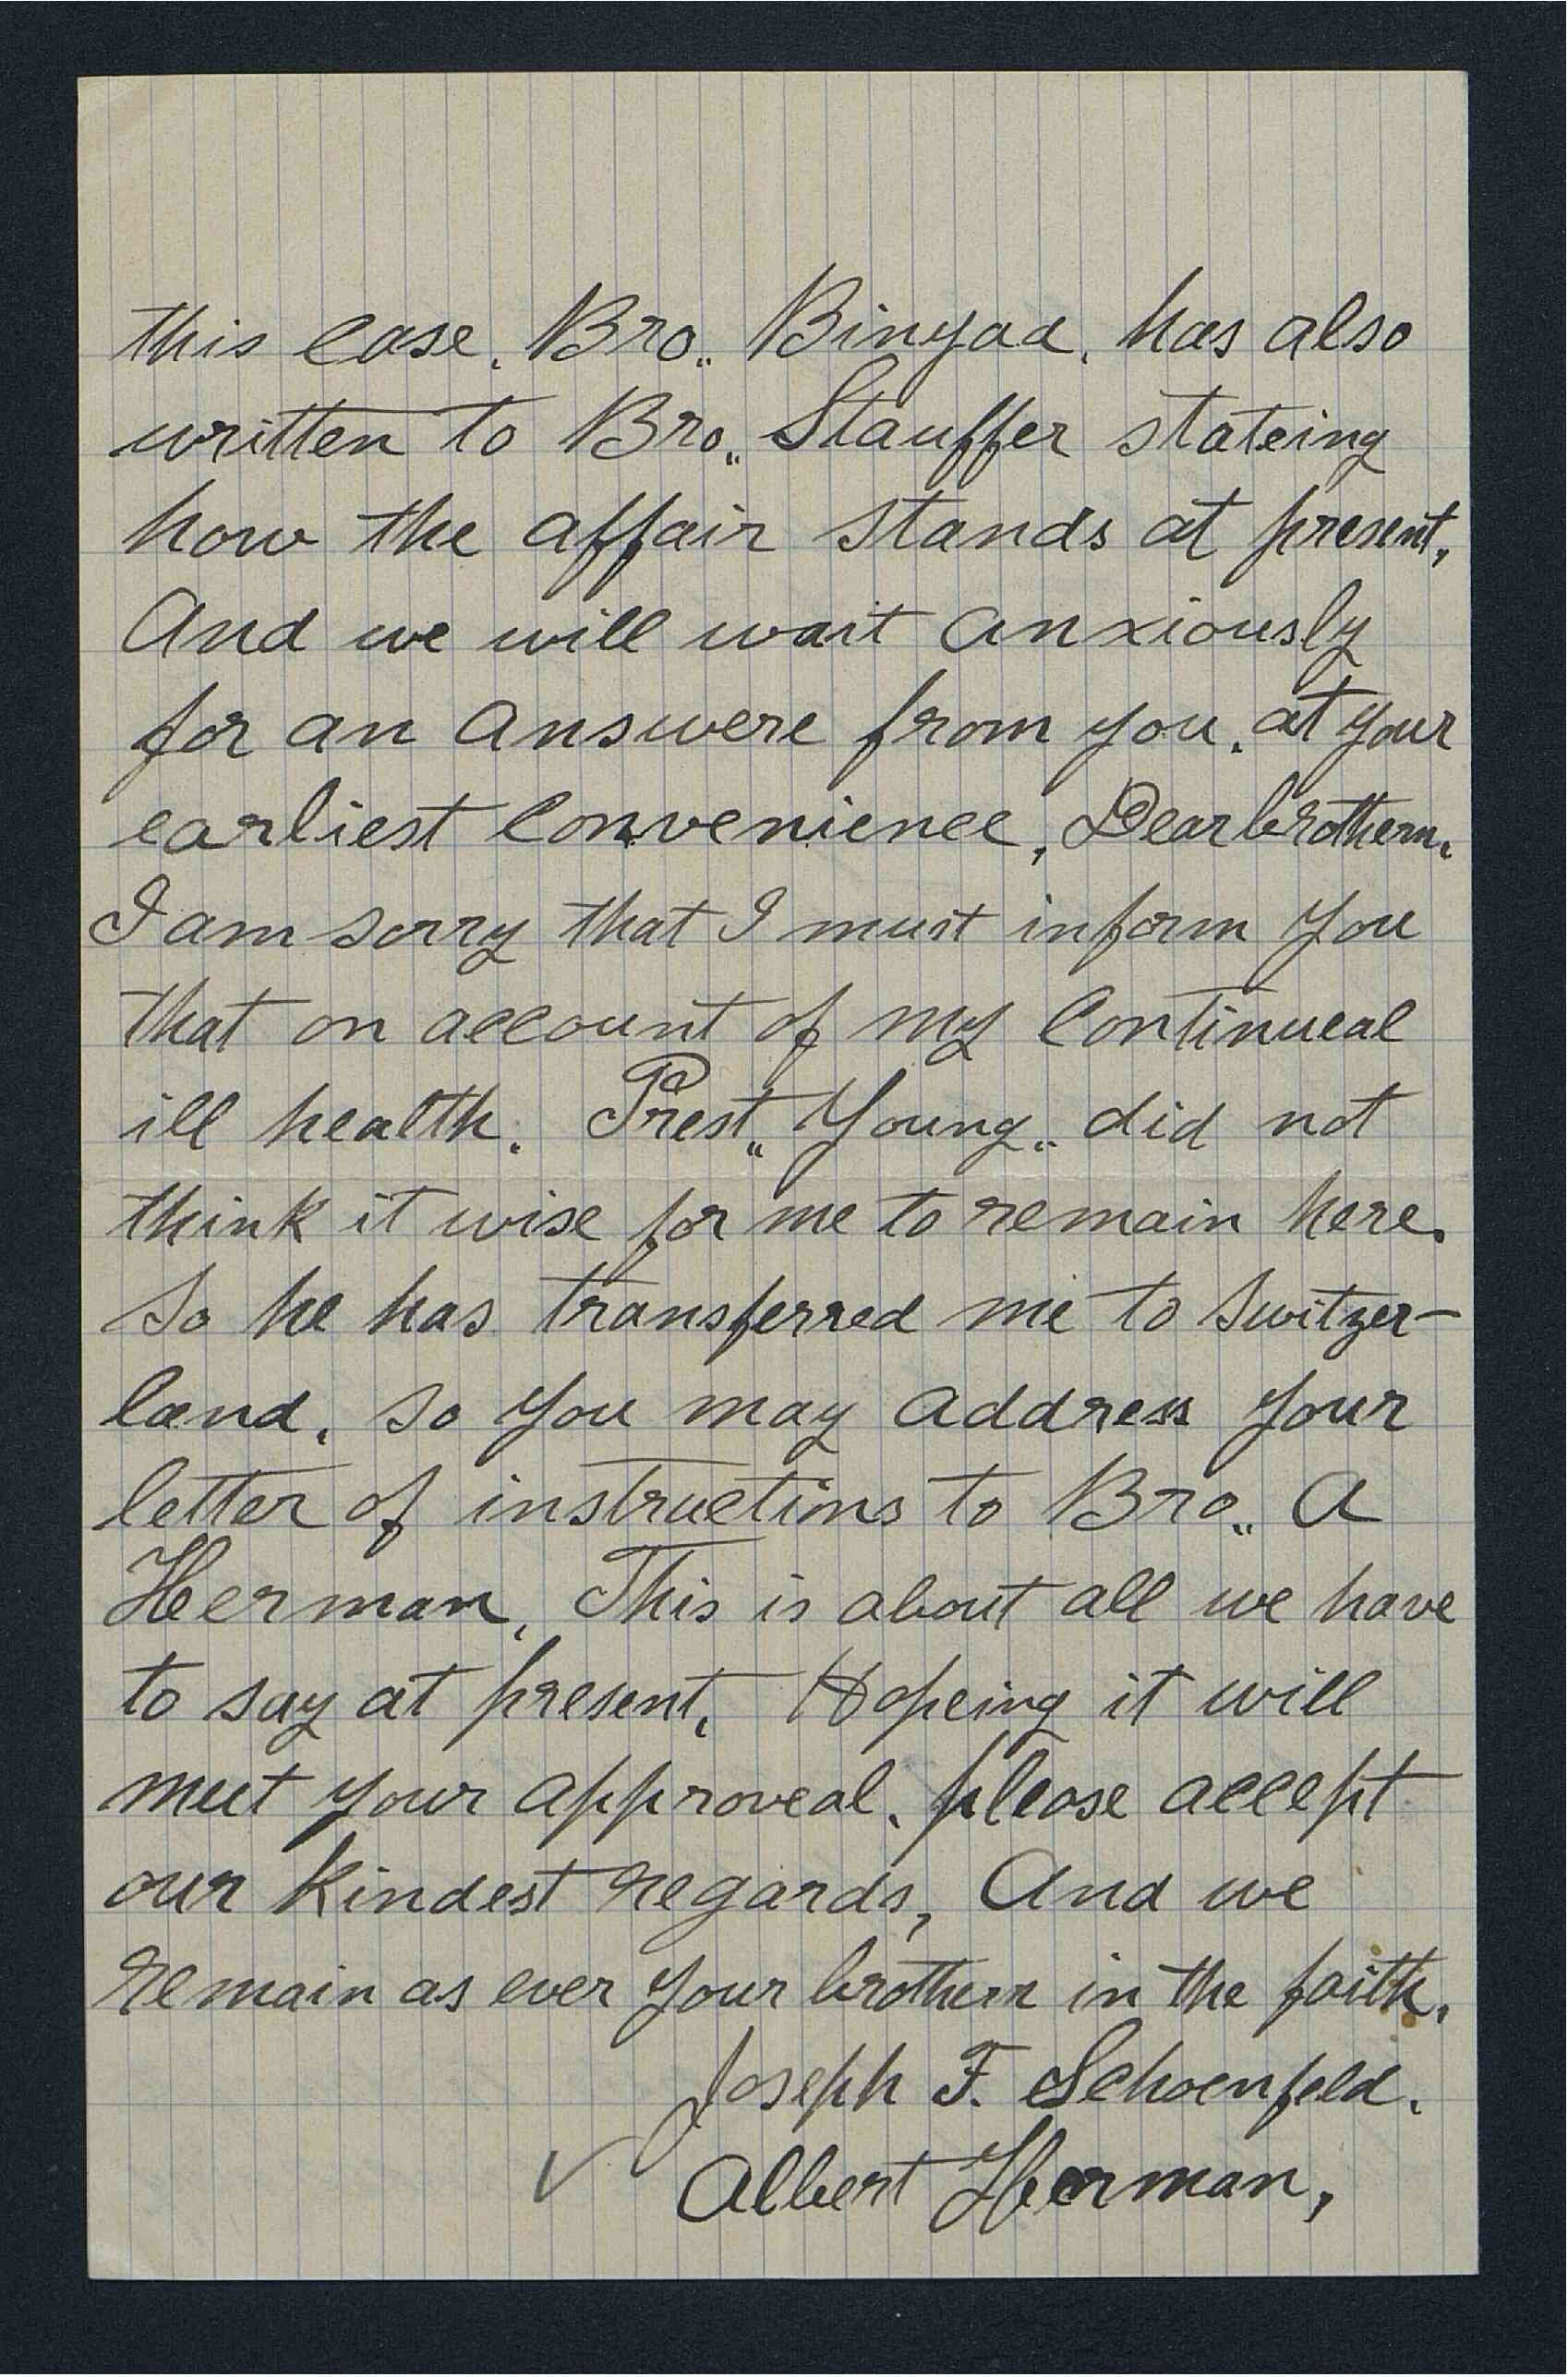 this case. Bro.. Binyaa. has also
written to Bro.. Stauffer stateing
how the affair stands at present,
And we will wait anxiously
for an answere from you. at your
earliest convenience, Dear brothern.
I am sorry that I must inform you
that on account of my continueal
ill health. Prest.. Young.. did not
think it wise for me to remain here.
So he has transferred me to Switzer-
land. so you may address your
letter of instructions to Bro.. A
Herman. This is about all we have
to say at present. Hopeing it will
meet your approveal. please accept
our kindest regards, And we
remain as ever your brothern in the faith.
Joseph F. Schoenfeld.
✓ Albert Herman,